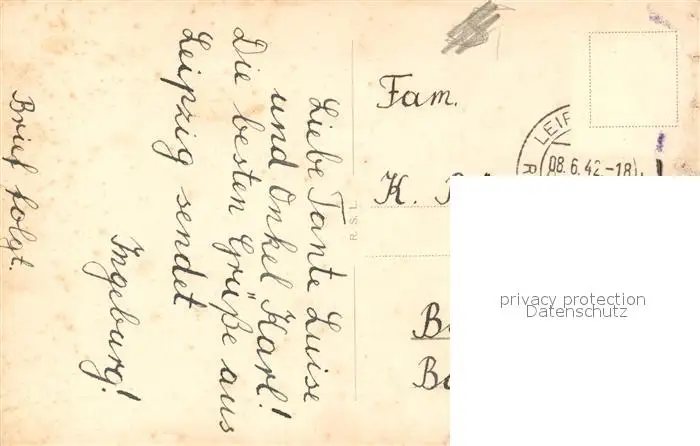 Liebe Tante Luise
und Onkel Karl!
Die besten Grüße aus
Leipzig sendet
Ingeburg!
Brief folgt.
R. S. L.
Fam.
K.
LEIP
08.6.42-18
privacy protection
Datenschutz